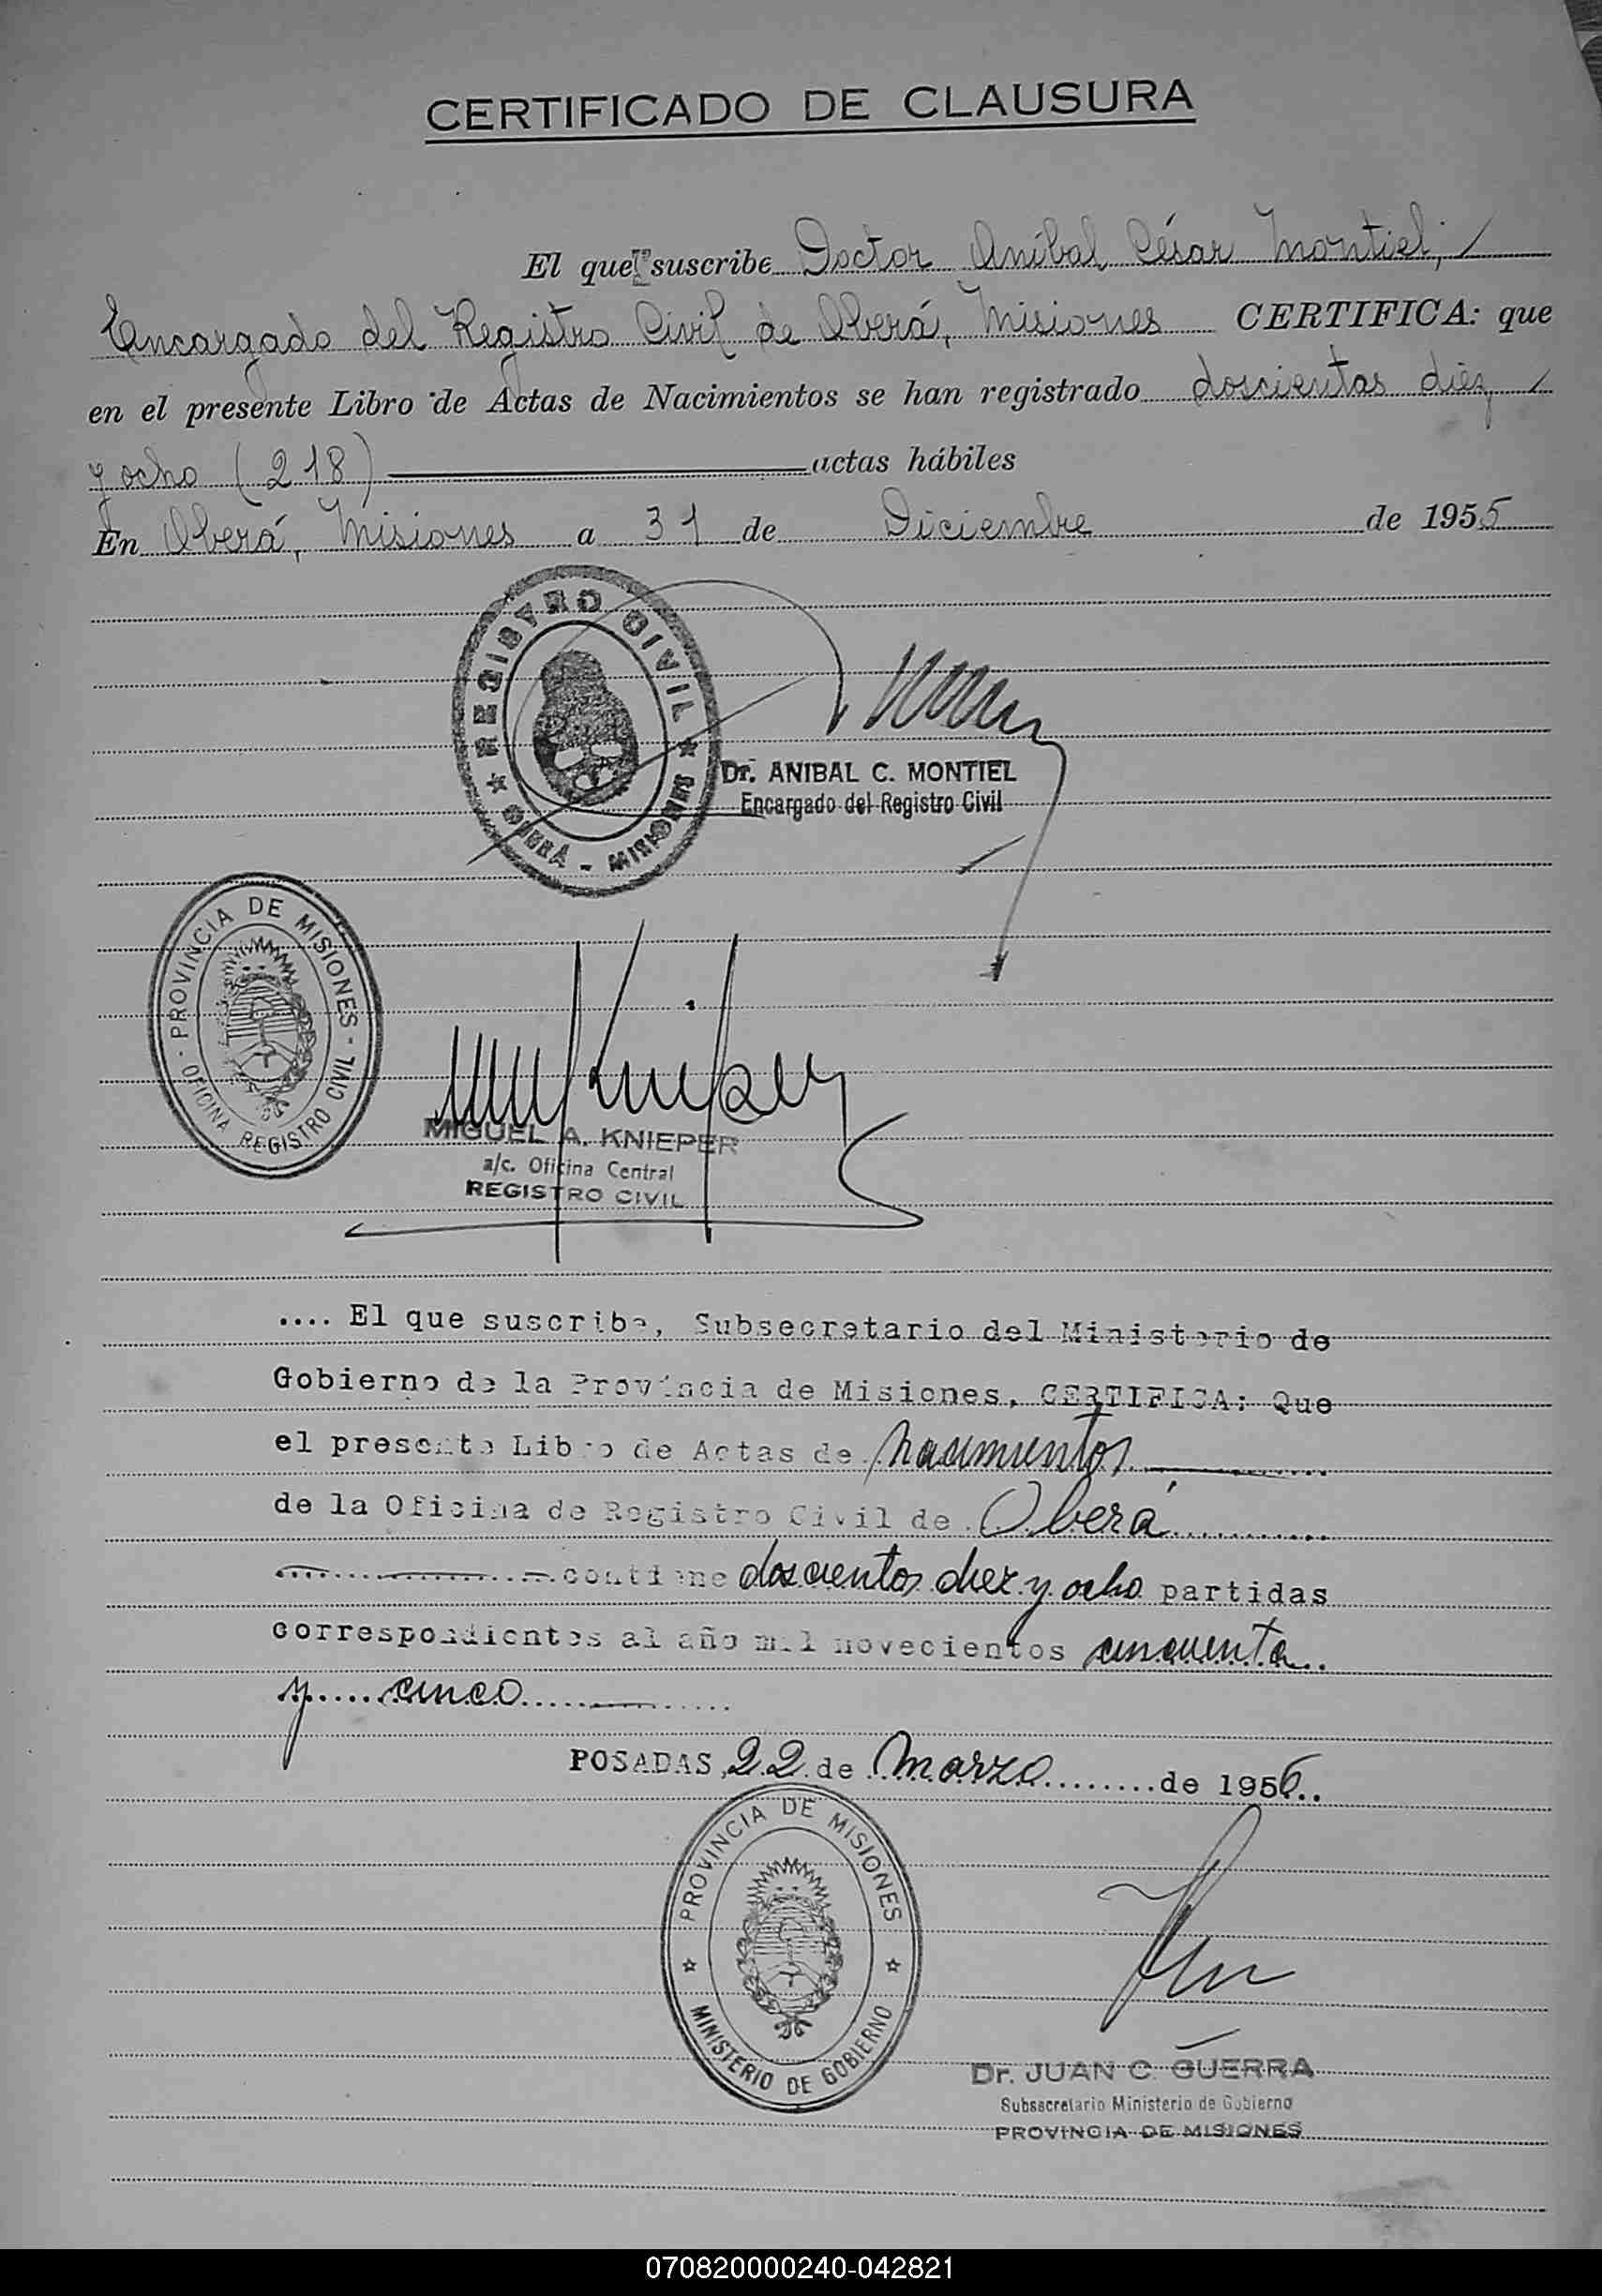 CERTIFICADO DE CLAUSURA
El que suscribe Doctor Aníbal César Montiel,
Encargado del Registro Civil de Oberá, Misiones CERTIFICA: que
en el presente Libro de Actas de Nacimientos se han registrado doscientas diez
y ocho (218) actas hábiles
En Oberá, Misiones a 31 de Diciembre de 1955
REGISTRO CIVIL
OBERÁ - MISIONES
Dr. ANIBAL C. MONTIEL
Encargado del Registro Civil
PROVINCIA DE MISIONES
OFICINA REGISTRO CIVIL
MIGUEL A. KNIEPER
a/c. Oficina Central
REGISTRO CIVIL
.... El que suscribe, Subsecretario del Ministerio de
Gobierno de la Provincia de Misiones, CERTIFICA: Que
el presente Libro de Actas de nacimientos
de la Oficina de Registro Civil de Oberá
contiene doscientos diez y ocho partidas
correspondientes al año mil novecientos cincuenta
y cinco
POSADAS, 22 de Marzo de 1956..
PROVINCIA DE MISIONES
MINISTERIO DE GOBIERNO
Dr. JUAN C. GUERRA
Subsecretario Ministerio de Gobierno
PROVINCIA DE MISIONES
070820000240-042821